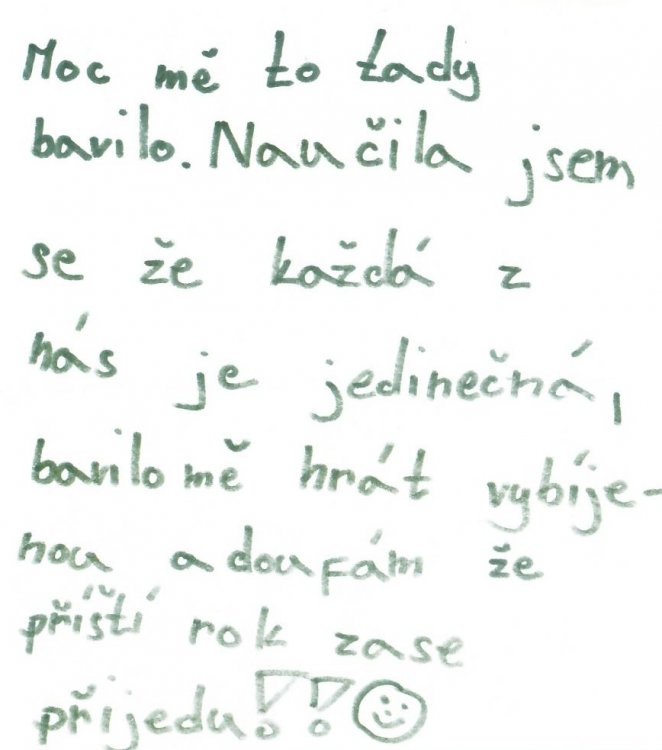 Moc mě to tady
bavilo. Naučila jsem
se že každá z
nás je jedinečná,
bavilo mě hrát vybíje-
nou a doufám že
příští rok zase
přijedu!!